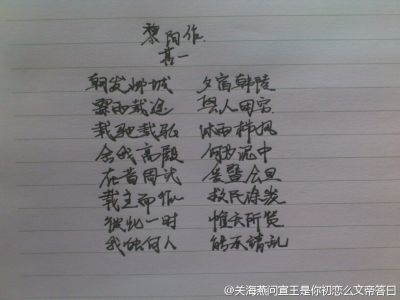 黎阳作
其一
朝发邺城 夕宿韩陵
霖雨载涂 舆人困穷
载驰载驱 沐雨栉风
舍我高殿 何为泥中
在昔周武 爰暨公旦
载主而征 救民涂炭
彼此一时 惟天所赞
我独何人 能不靖乱
@关海燕问宣王是你初恋么文帝答曰